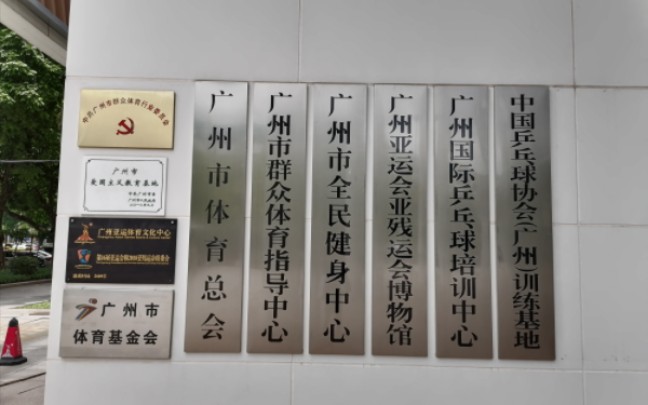 中共广州市群众体育行业委员会
广州市
爱国主义教育基地
广州亚运体育文化中心
广州市
体育基金会
广州市体育总会
广州市群众体育指导中心
广州市全民健身中心
广州亚运会亚残运会博物馆
广州国际乒乓球培训中心
中国乒乓球协会(广州)训练基地